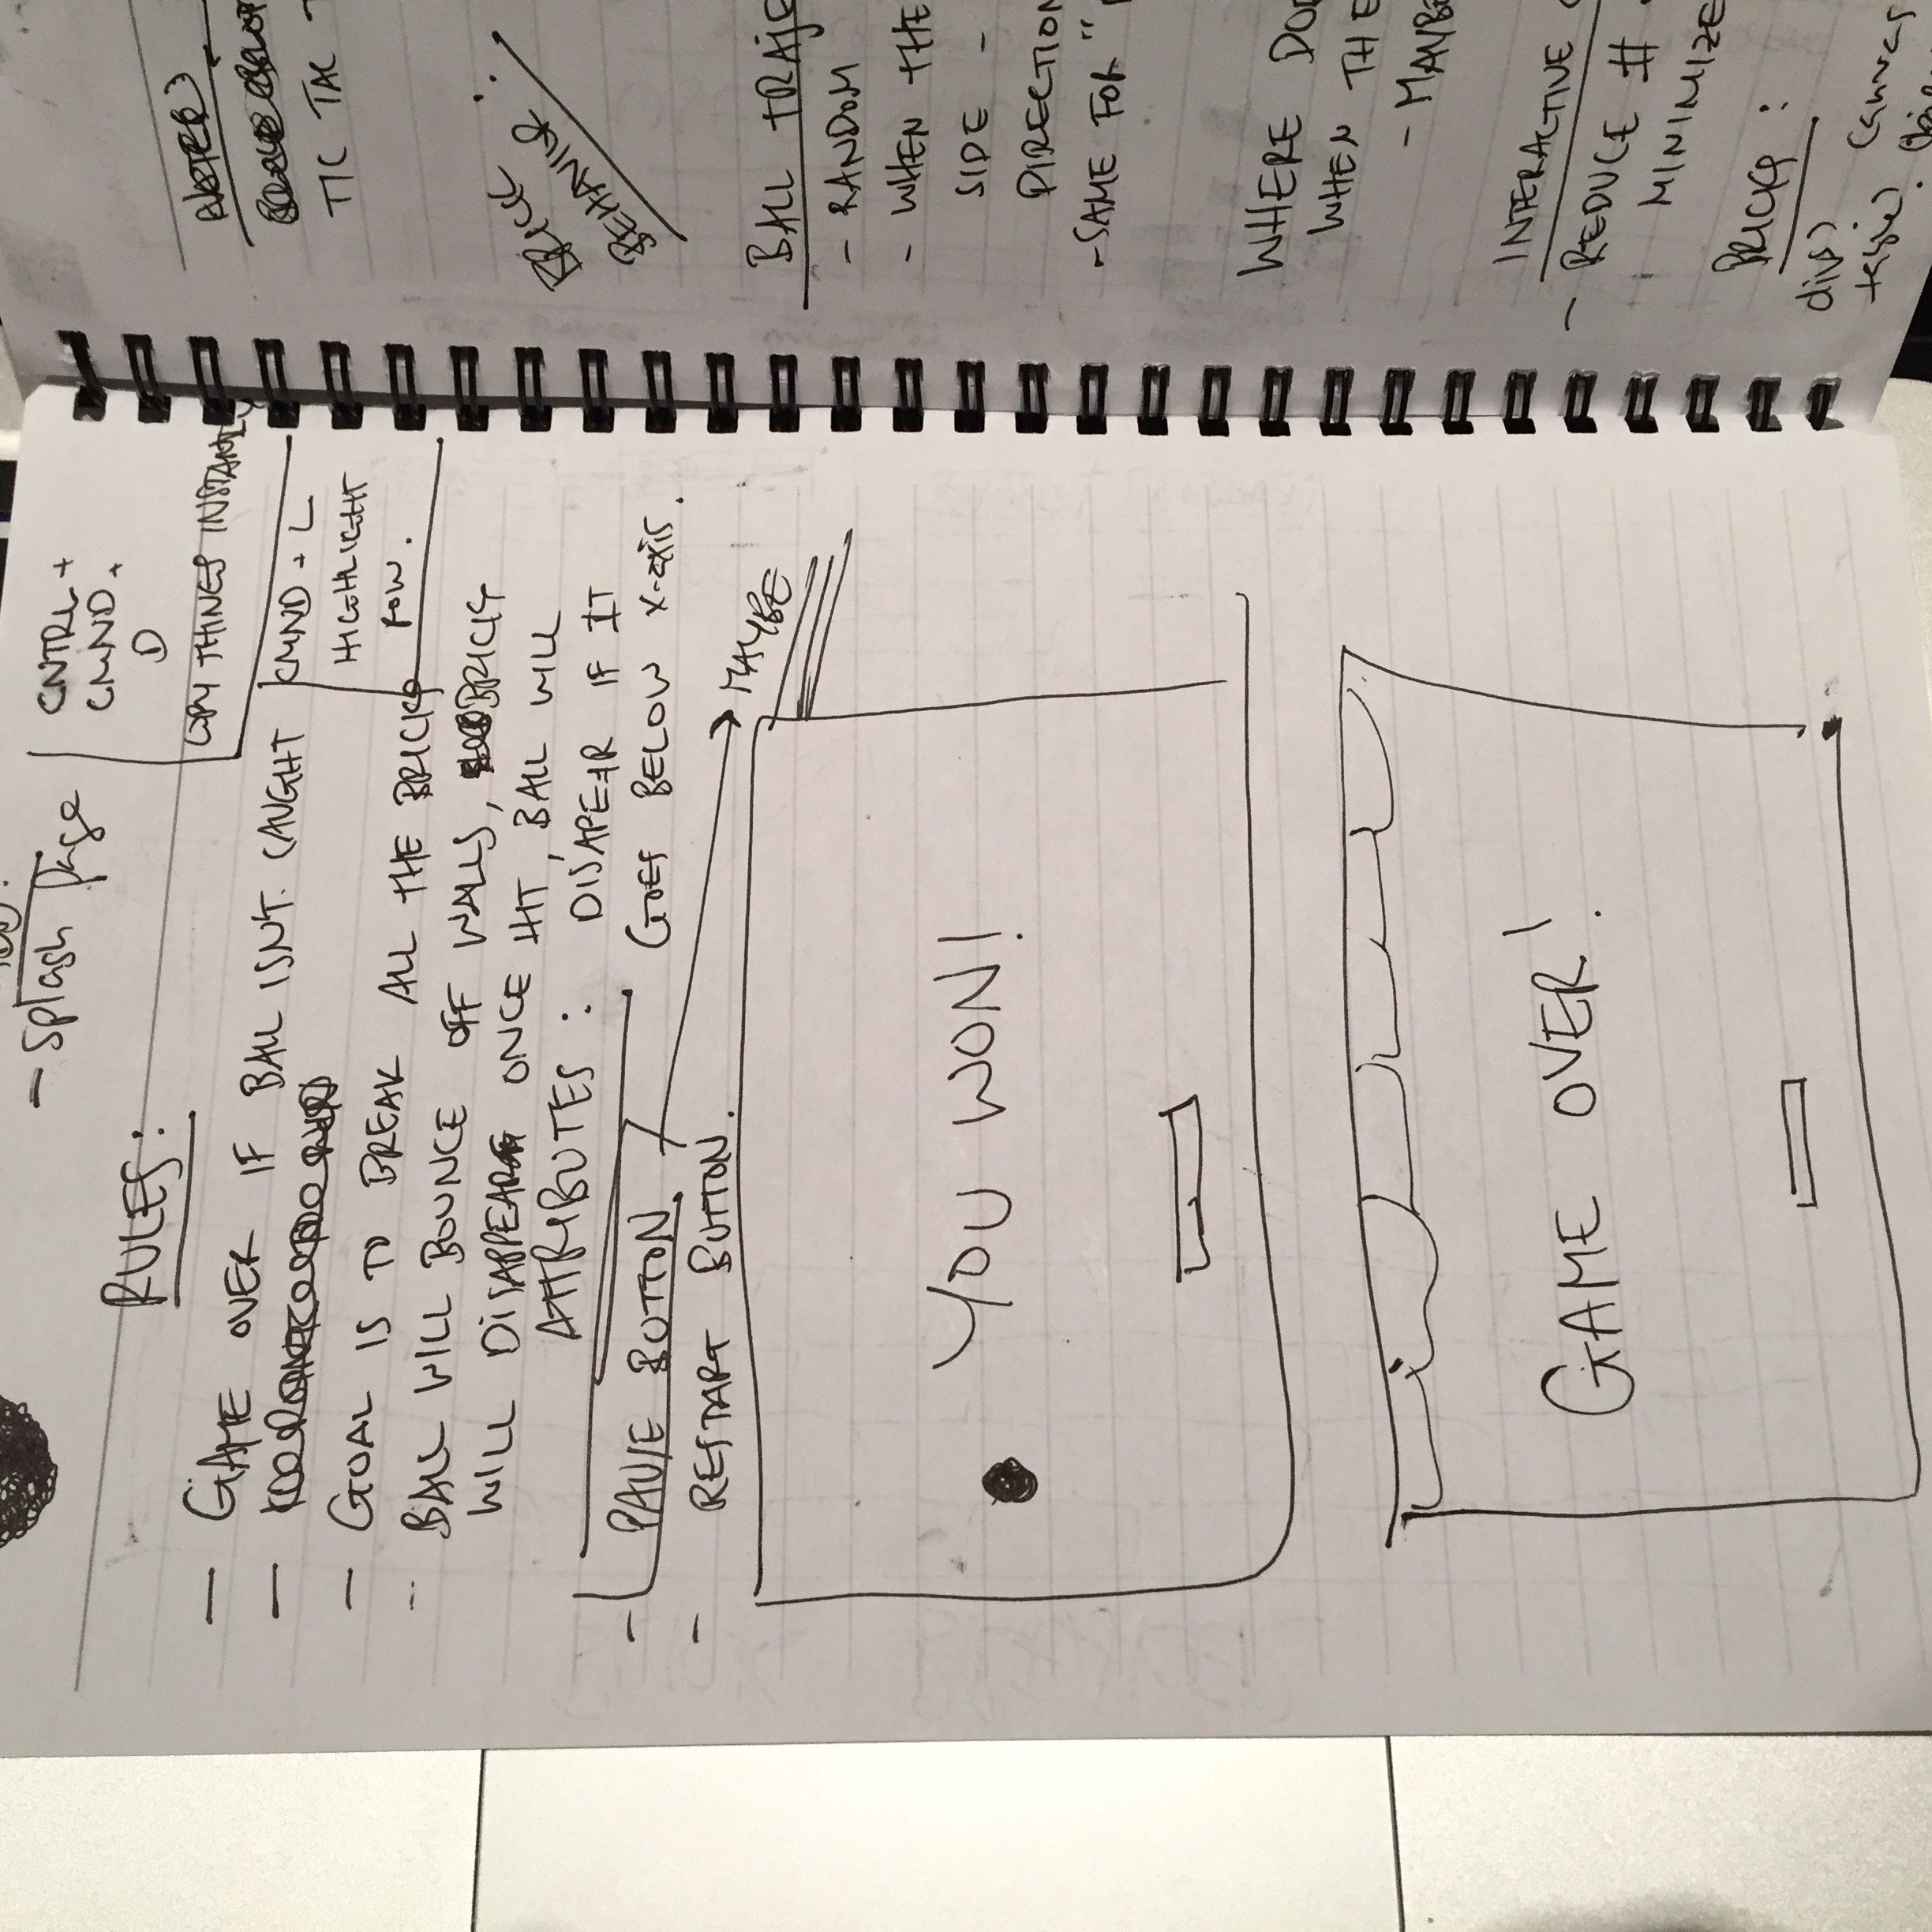 - Splash page
CNTRL +
CMND +
D
COPY THINGS INSTANTLY
CMND + L
HIGHLIGHT
ROW.
RULES:
- GAME OVER IF BALL ISNT CAUGHT
-
- GOAL IS TO BREAK ALL THE BRICKS
- BALL WILL BOUNCE OFF WALLS, BRICKS
WILL DISAPPEAR ONCE HIT, BALL WILL
ATTRIBUTES: DISAPEAR IF IT
GOES BELOW X-axis.
- PAUSE BUTTON
MAYBE
- RESTART BUTTON.
YOU WON!
GAME OVER!
NOTES
TIC TAC
BEHAVIOR
BALL TRAJE
- RANDOM
- WHEN THE
SIDE -
DIRECTION
- SAME FOR "
WHERE DO
WHEN THE
- MAYBE
INTERACTIVE
- REDUCE #
MINIMIZE
BRICKS:
divs